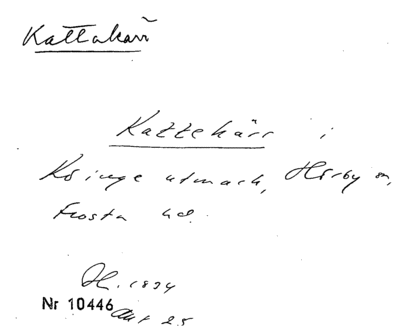 Kattakärr
Kattekärr i
utmark, Hörby sn,
Frosta hd.
1894
Nr 10446